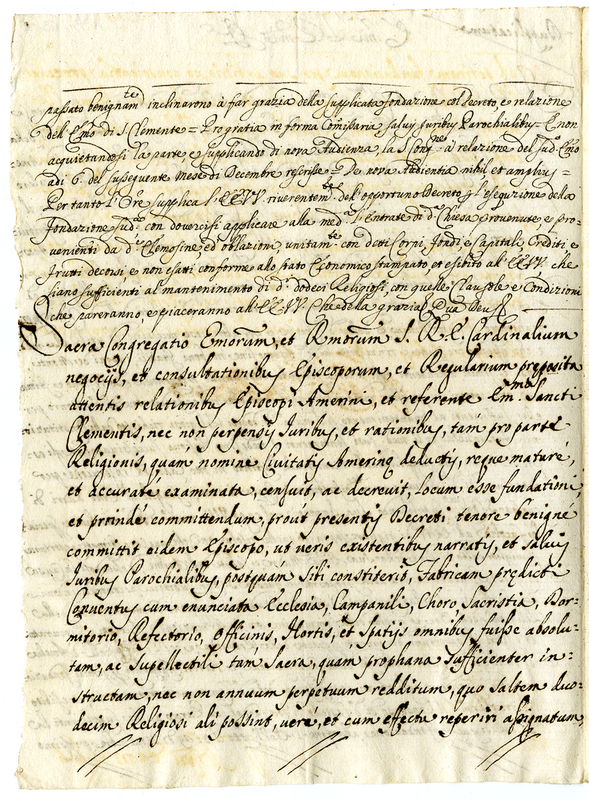 passato benignamte inclinarono à far grazia della supplicata fondazione col Decreto, e relazione
dell'Emo di S. Clemente = Pro gratia in forma Comissaria salvis juribus Parochialibus = E non
acquietandosi la parte, e supplicando di nova Audienza, la S. Congne à relazione del sudo Emo
adi 6. del susseguente Mese di Decembre rescrisse = De nova Audientia nihil et amplius =
Per tanto l'Ore supplica l'EE.VV. riverentemte dell'opportuno Decreto p l'esequzione della
fondazione suda con doversi applicare alla meda l'Entrate di da Chiesa provenute, e pro-
venienti da de Elemosine ed oblazioni unitamte con detti corpi, fondi, e Capitali, Crediti e
frutti decorsi e non esatti conforme allo stato Economico stampato, et esibito all'EE.VV. che
siano sufficienti al mantenimento di di dodeci Religiosi, con quelle Clausole e Condizioni
che pareranno, e piaceranno all'EE.VV. Che della grazia Qua Deus
Sacra Congregatio Emorum, et Rmorum S. R. E. Cardinalium
negocijs, et consultationibus Episcoporum, et Regularium preposita
attentis relationibus Episcopi Amerini, et referente Emmo Sancti
Clementis, nec non perpensis Juribus, et rationibus, tàm pro parte
Religionis, quàm nomine Civitatis Amerinę deductis, reque maturè,
et accuratè examinata, censuit, ac decrevit, locum esse fundationi,
et proindè committendum, proùt presentis Decreti tenore benignè
committit eidem Episcopo, ut veris existentibus narratis, et salvis
Juribus Parochialibus, postquàm sibi constiterit, Fabricam prędicti
Conventus cum enunciata Ecclesia, Campanili, Choro, Sacristia, Dor-
mitorio, Refectorio, Officinis, Hortis, et spatijs omnibus fuisse absolu-
tam, ac supellectili tàm Sacra, quam prophana sufficienter in-
structam, nec non annuum perpetuum redditum, quo saltem duo-
decim Religiosi ali possint, verè, et cum effectu reperiri assignatum,